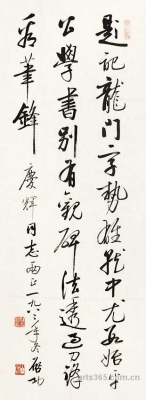 題記龍門字勢雄就中尤數始平
公學書別有觀碑法透過刀鋒
看筆鋒
慶輝同志兩正一九八三年冬啟功
arts365.com.cn